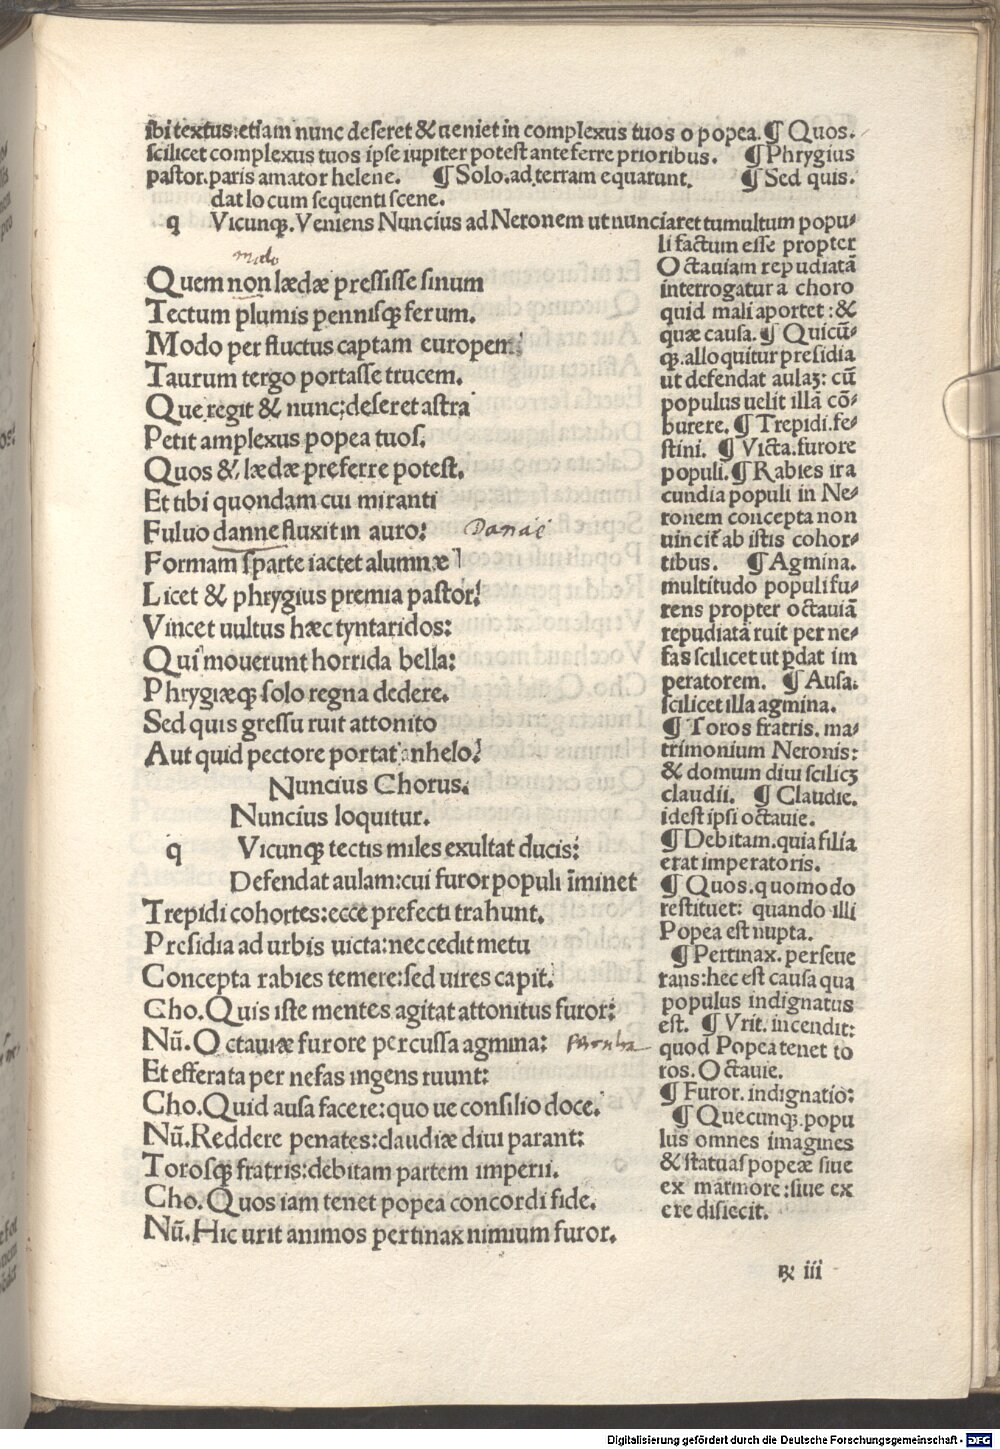 ibi textus:etiam nunc deseret & ueniet in complexus tuos o popea.¶ Quos.
scilicet complexus tuos ipse iupiter potest ante ferre prioribus. ¶ Phrygius
pastor.paris amator helene. ¶ Solo.ad terram equarunt. ¶ Sed quis.
dat locum sequenti scene.
q Vicunqꝫ.Veniens Nuncius ad Neronem ut nunciaret tumultum popu-
li factum esse propter
Octauiam repudiatā
interrogatur a choro
quid mali aportet:&
quæ causa.¶ Quicū-
qꝫ.alloquitur presidia
ut defendat aulaꝫ: cū
populus uelit illā cō-
burere.¶ Trepidi.fe-
stini. ¶ Victa.furore
populi.¶ Rabies ira
cundia populi in Ne-
ronem concepta non
uincit ab istis cohor-
tibus. ¶ Agmina.
multitudo populi fu-
rens propter octauiā
repudiatā ruit per ne-
fas scilicet ut pdat im
peratorem. ¶ Ausa.
scilicet illa agmina.
¶ Toros fratris. ma-
trimonium Neronis:
& domum diui scilicꝫ
claudii. ¶ Claudie.
idest ipsi octauie.
¶ Debitam.quia filia
erat imperatoris.
¶ Quos.quomodo
restituet: quando illi
Popea est nupta.
¶ Pertinax. perseue
rans:hec est causa qua
populus indignatus
est. ¶ Vrit. incendit:
quod Popea tenet to
ros.Octauie.
¶ Furor. indignatio:
¶ Quecunqꝫ.popu
lus omnes imagines
& statuas popeæ siue
ex marmore:siue ex
ere disiecit.
modo
Quem non lædæ pressisse sinum
Tectum plumis pennisqꝫ ferum.
Modo per fluctus captam europem:
Taurum tergo portasse trucem.
Que regit & nunc:deseret astra
Petit amplexus popea tuos.
Quos & lædæ preferre potest.
Et tibi quondam cui miranti
Fuluo danne fluxit in auro: Danae
Formam sparte iactet alumnæ
Licet & phrygius premia pastor:
Vincet uultus hæc tyntaridos:
Qui mouerunt horrida bella:
Phrygiæqꝫ solo regna dedere.
Sed quis gressu ruit attonito
Aut quid pectore portat anhelo?
Nuncius Chorus.
Nuncius loquitur.
q Vicunqꝫ tectis miles exultat ducis:
Defendat aulam:cui furor populi īminet
Trepidi cohortes:ecce prefecti trahunt.
Presidia ad urbis uicta:nec cedit metu
Concepta rabies temere:sed uires capit.
Cho.Quis iste mentes agitat attonitus furor:
Nū.Octauiæ furore percussa agmina:
Et efferata per nefas ingens ruunt:
Cho.Quid ausa facere:quo ue consilio doce.
Nū.Reddere penates:claudiæ diui parant:
Torosqꝫ fratris:debitam partem imperii.
Cho.Quos iam tenet popea concordi fide.
Nū.Hic urit animos pertinax nimium furor.
iii
Digitalisierung gefördert durch die Deutsche Forschungsgemeinschaft - DFG